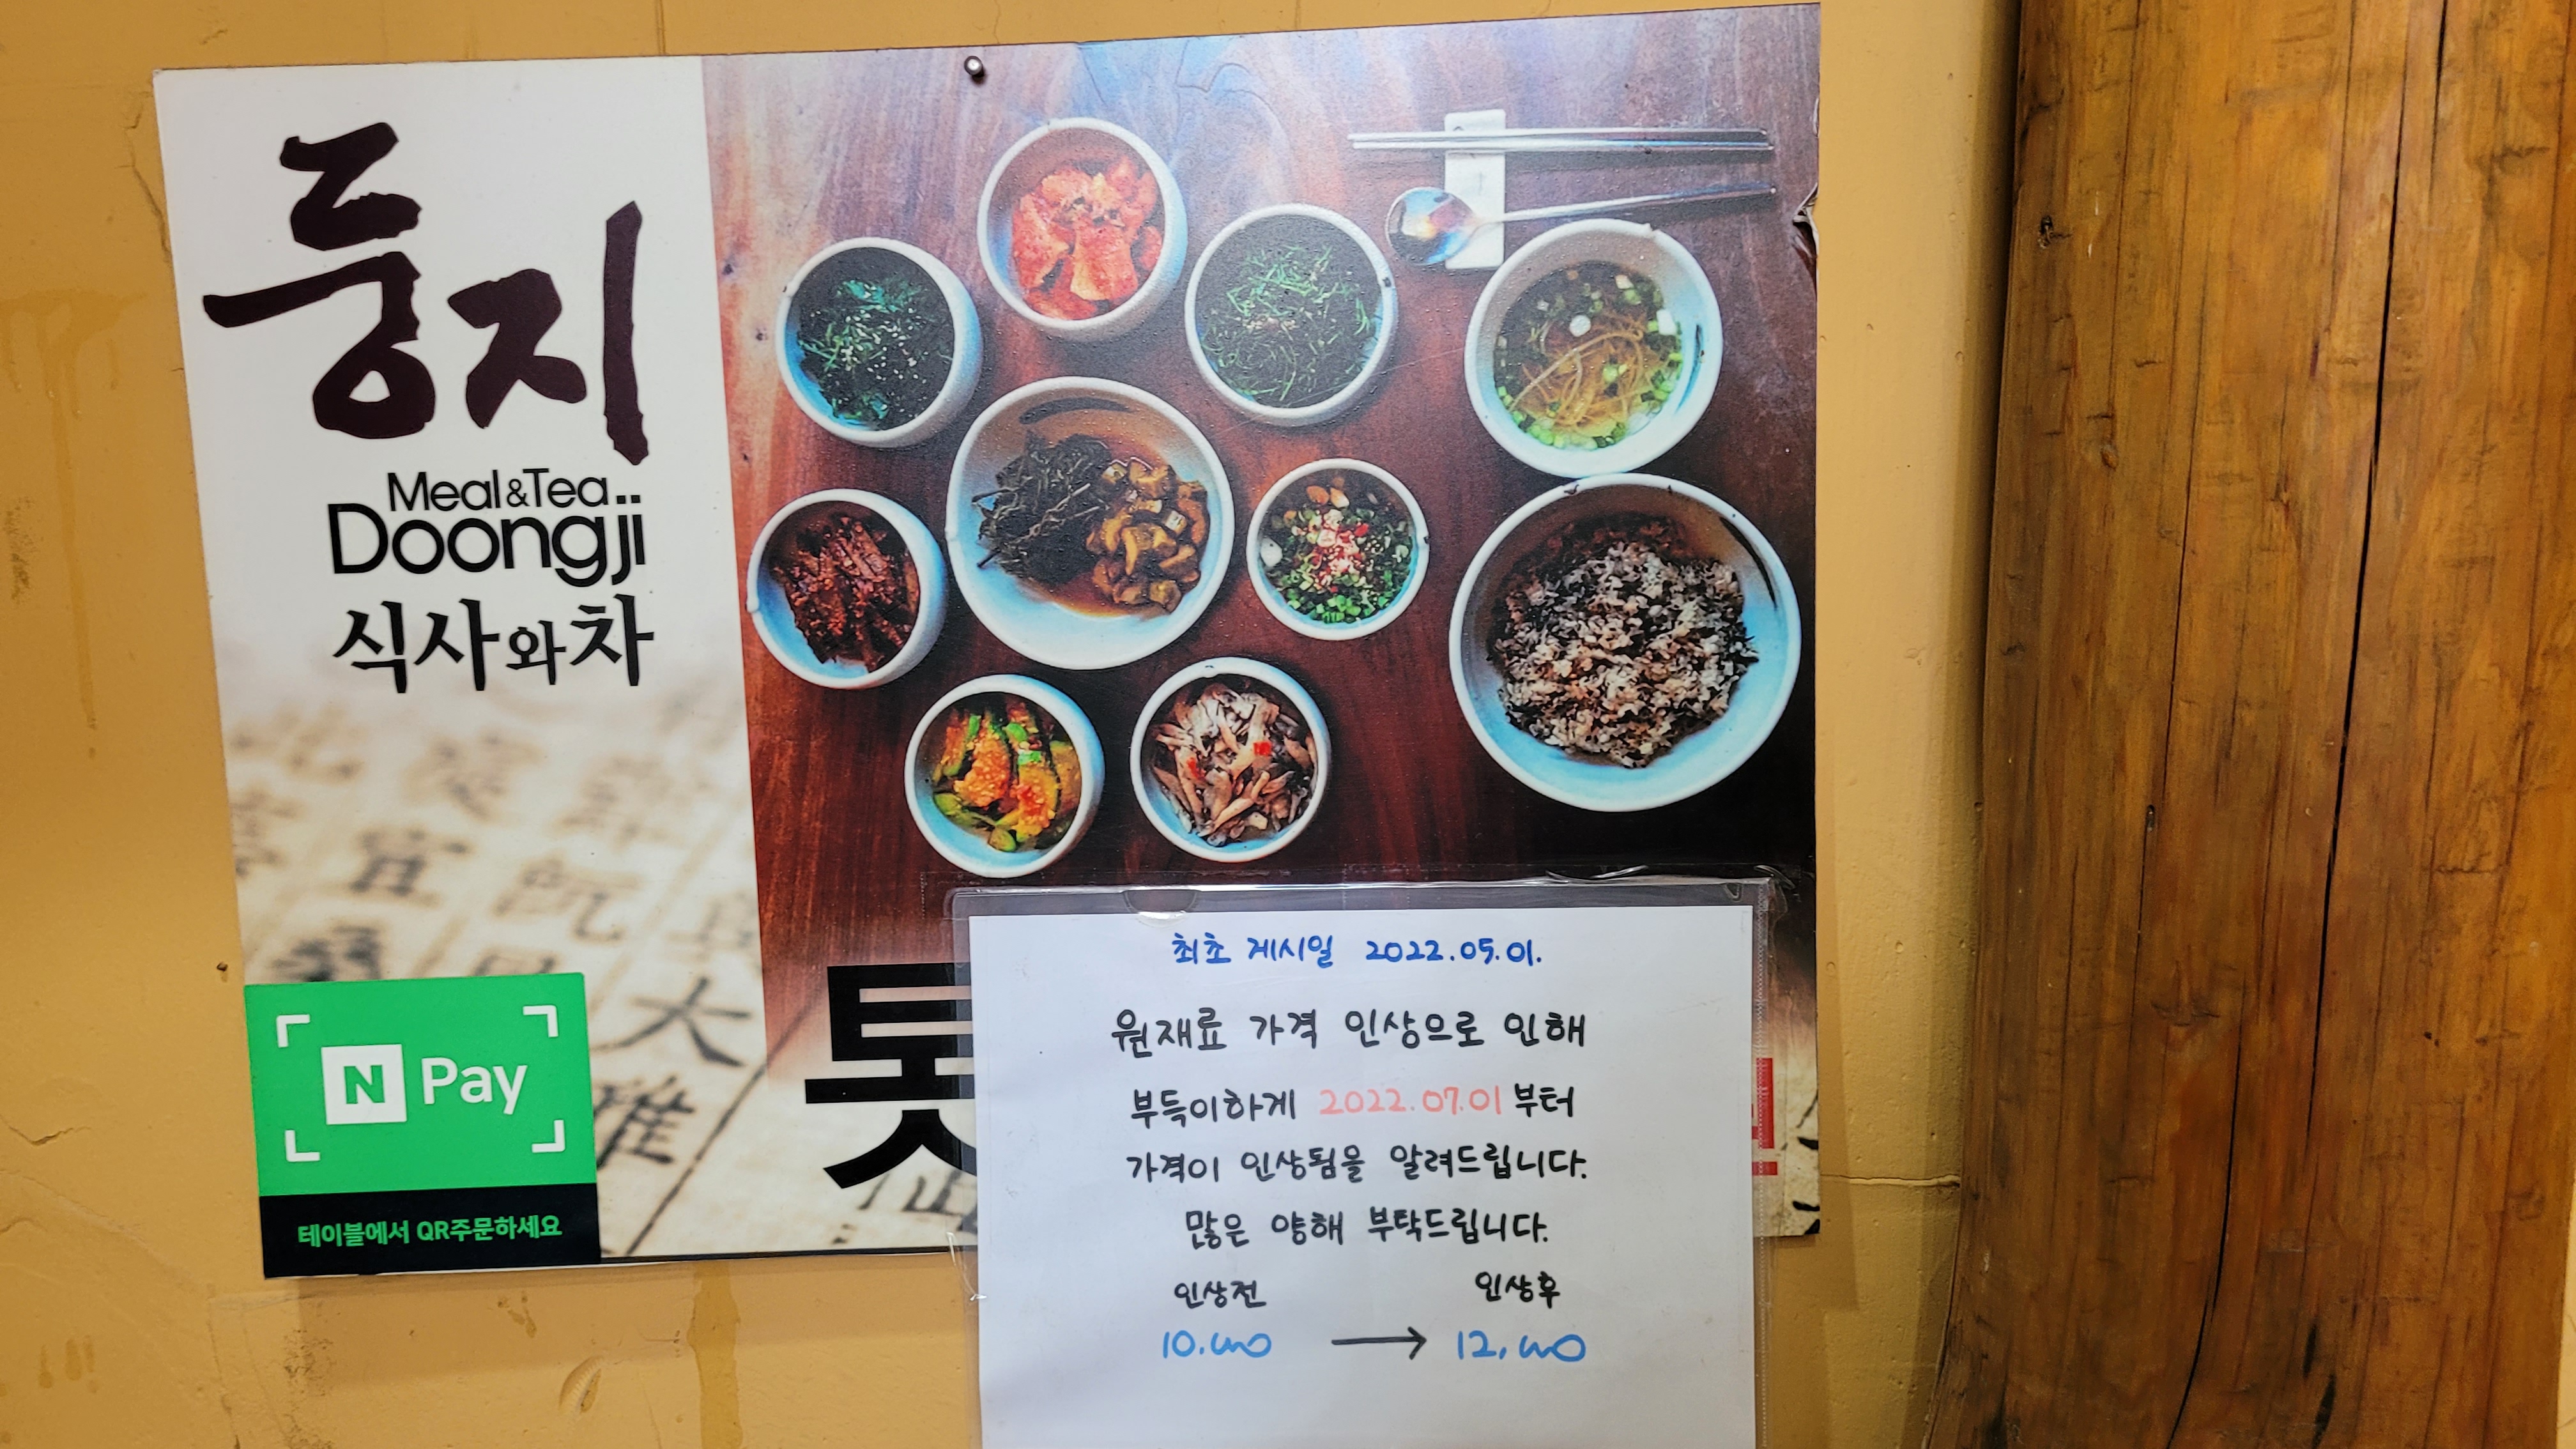 둥지
Meal&Tea
Doongji
식사와차
N Pay
테이블에서 QR주문하세요
톳
최초 게시일 2022.05.01.
원재료 가격 인상으로 인해
부득이하게 2022.07.01 부터
가격이 인상됨을 알려드립니다.
많은 양해 부탁드립니다.
인상전 인상후
10.000 → 12.000
宜
大
雅